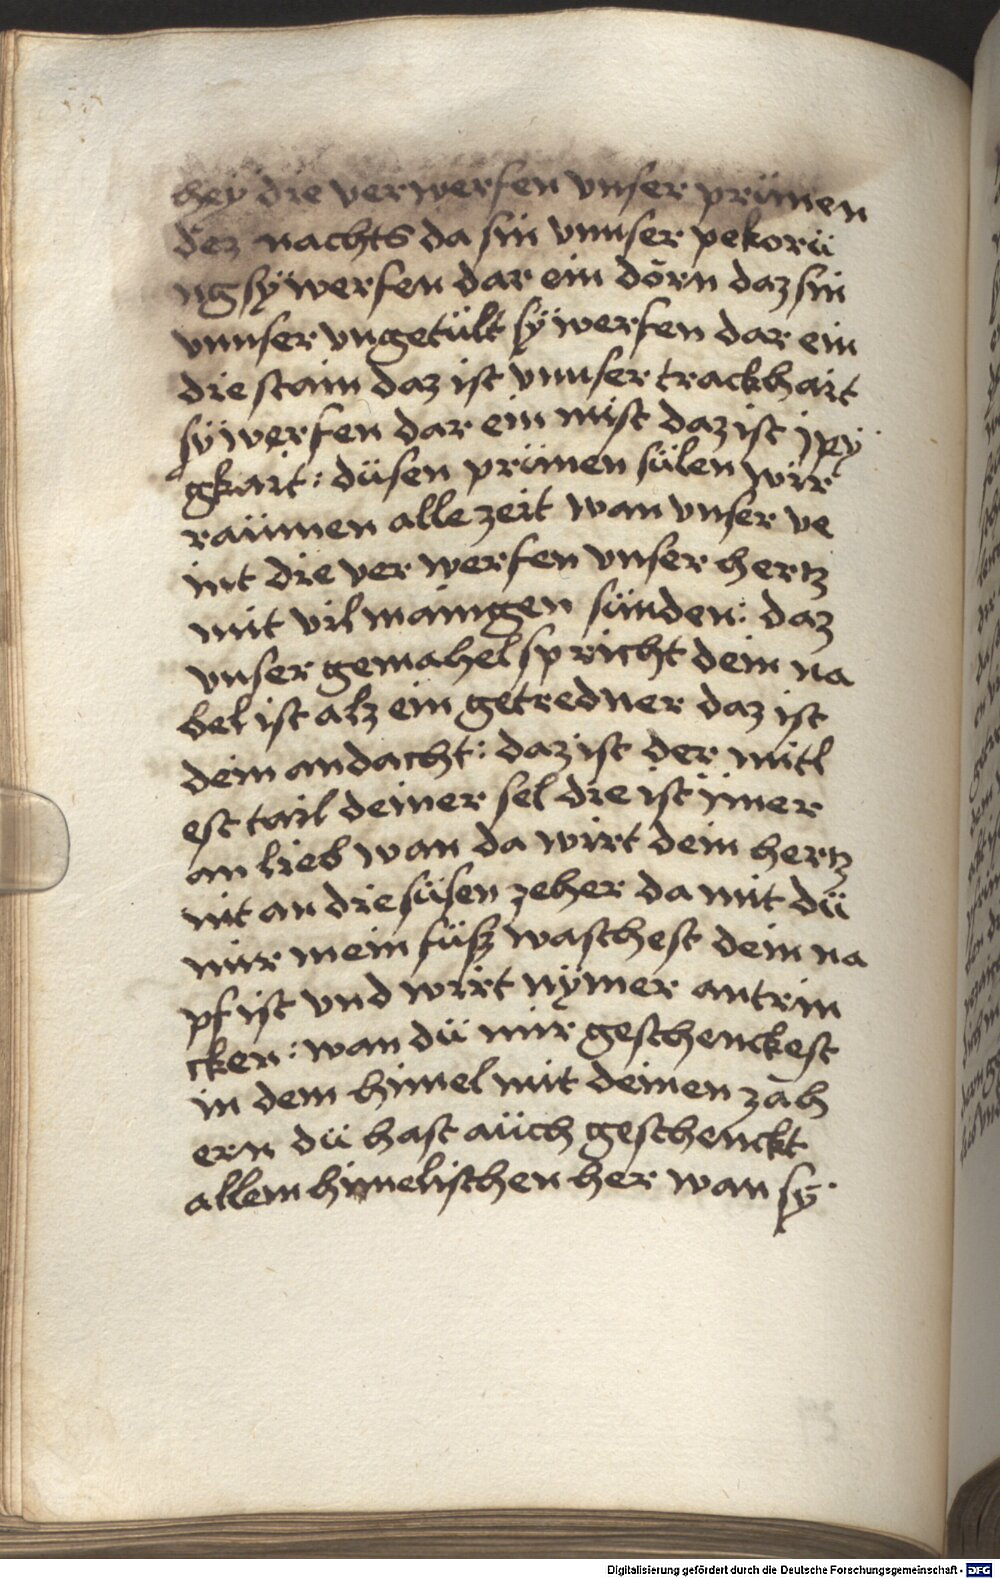 hey die verwerfen vnser prümen
dez nachts da sin vnnser pekorü
ng sÿ werfen dar ein dörn daz sin
vnnser vngetült sÿ werfen dar ein
die stain daz ist vnnser trackhait
sÿ werfen dar ein mist daz ist jpÿ
gkait : düsen prümen sülen wir
raümen alle zeit wan vnser ve
int die ver werfen vnser hertz
mit vil maingen sünden : daz
vnser gemahel spricht dein na
bel ist alz ein getredner daz ist
dein andacht : daz ist der mitl
est tail deiner sel die ist jmer
an lieb wan da wirt dein hertz
nit an die süsen zeher da mit dü
mir mein füsz waschest dein na
pf ist vnd wirt nÿmer antrin
cken : wan dü mir geschenckest
in dem himel mit deinen zäh
ern dü hast aüch geschenckt
allem himelischen her wan sÿ
Digitalisierung gefördert durch die Deutsche Forschungsgemeinschaft - DFG